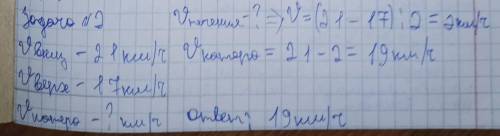 Задача №2 Vтечения-? => V=(21-17):2=2км/ч
Vвниз - 21км/ч Vкатера = 21-2=19км/ч
Vверх - 17км/ч
Vкатера - ? км/ч ответ: 19км/ч